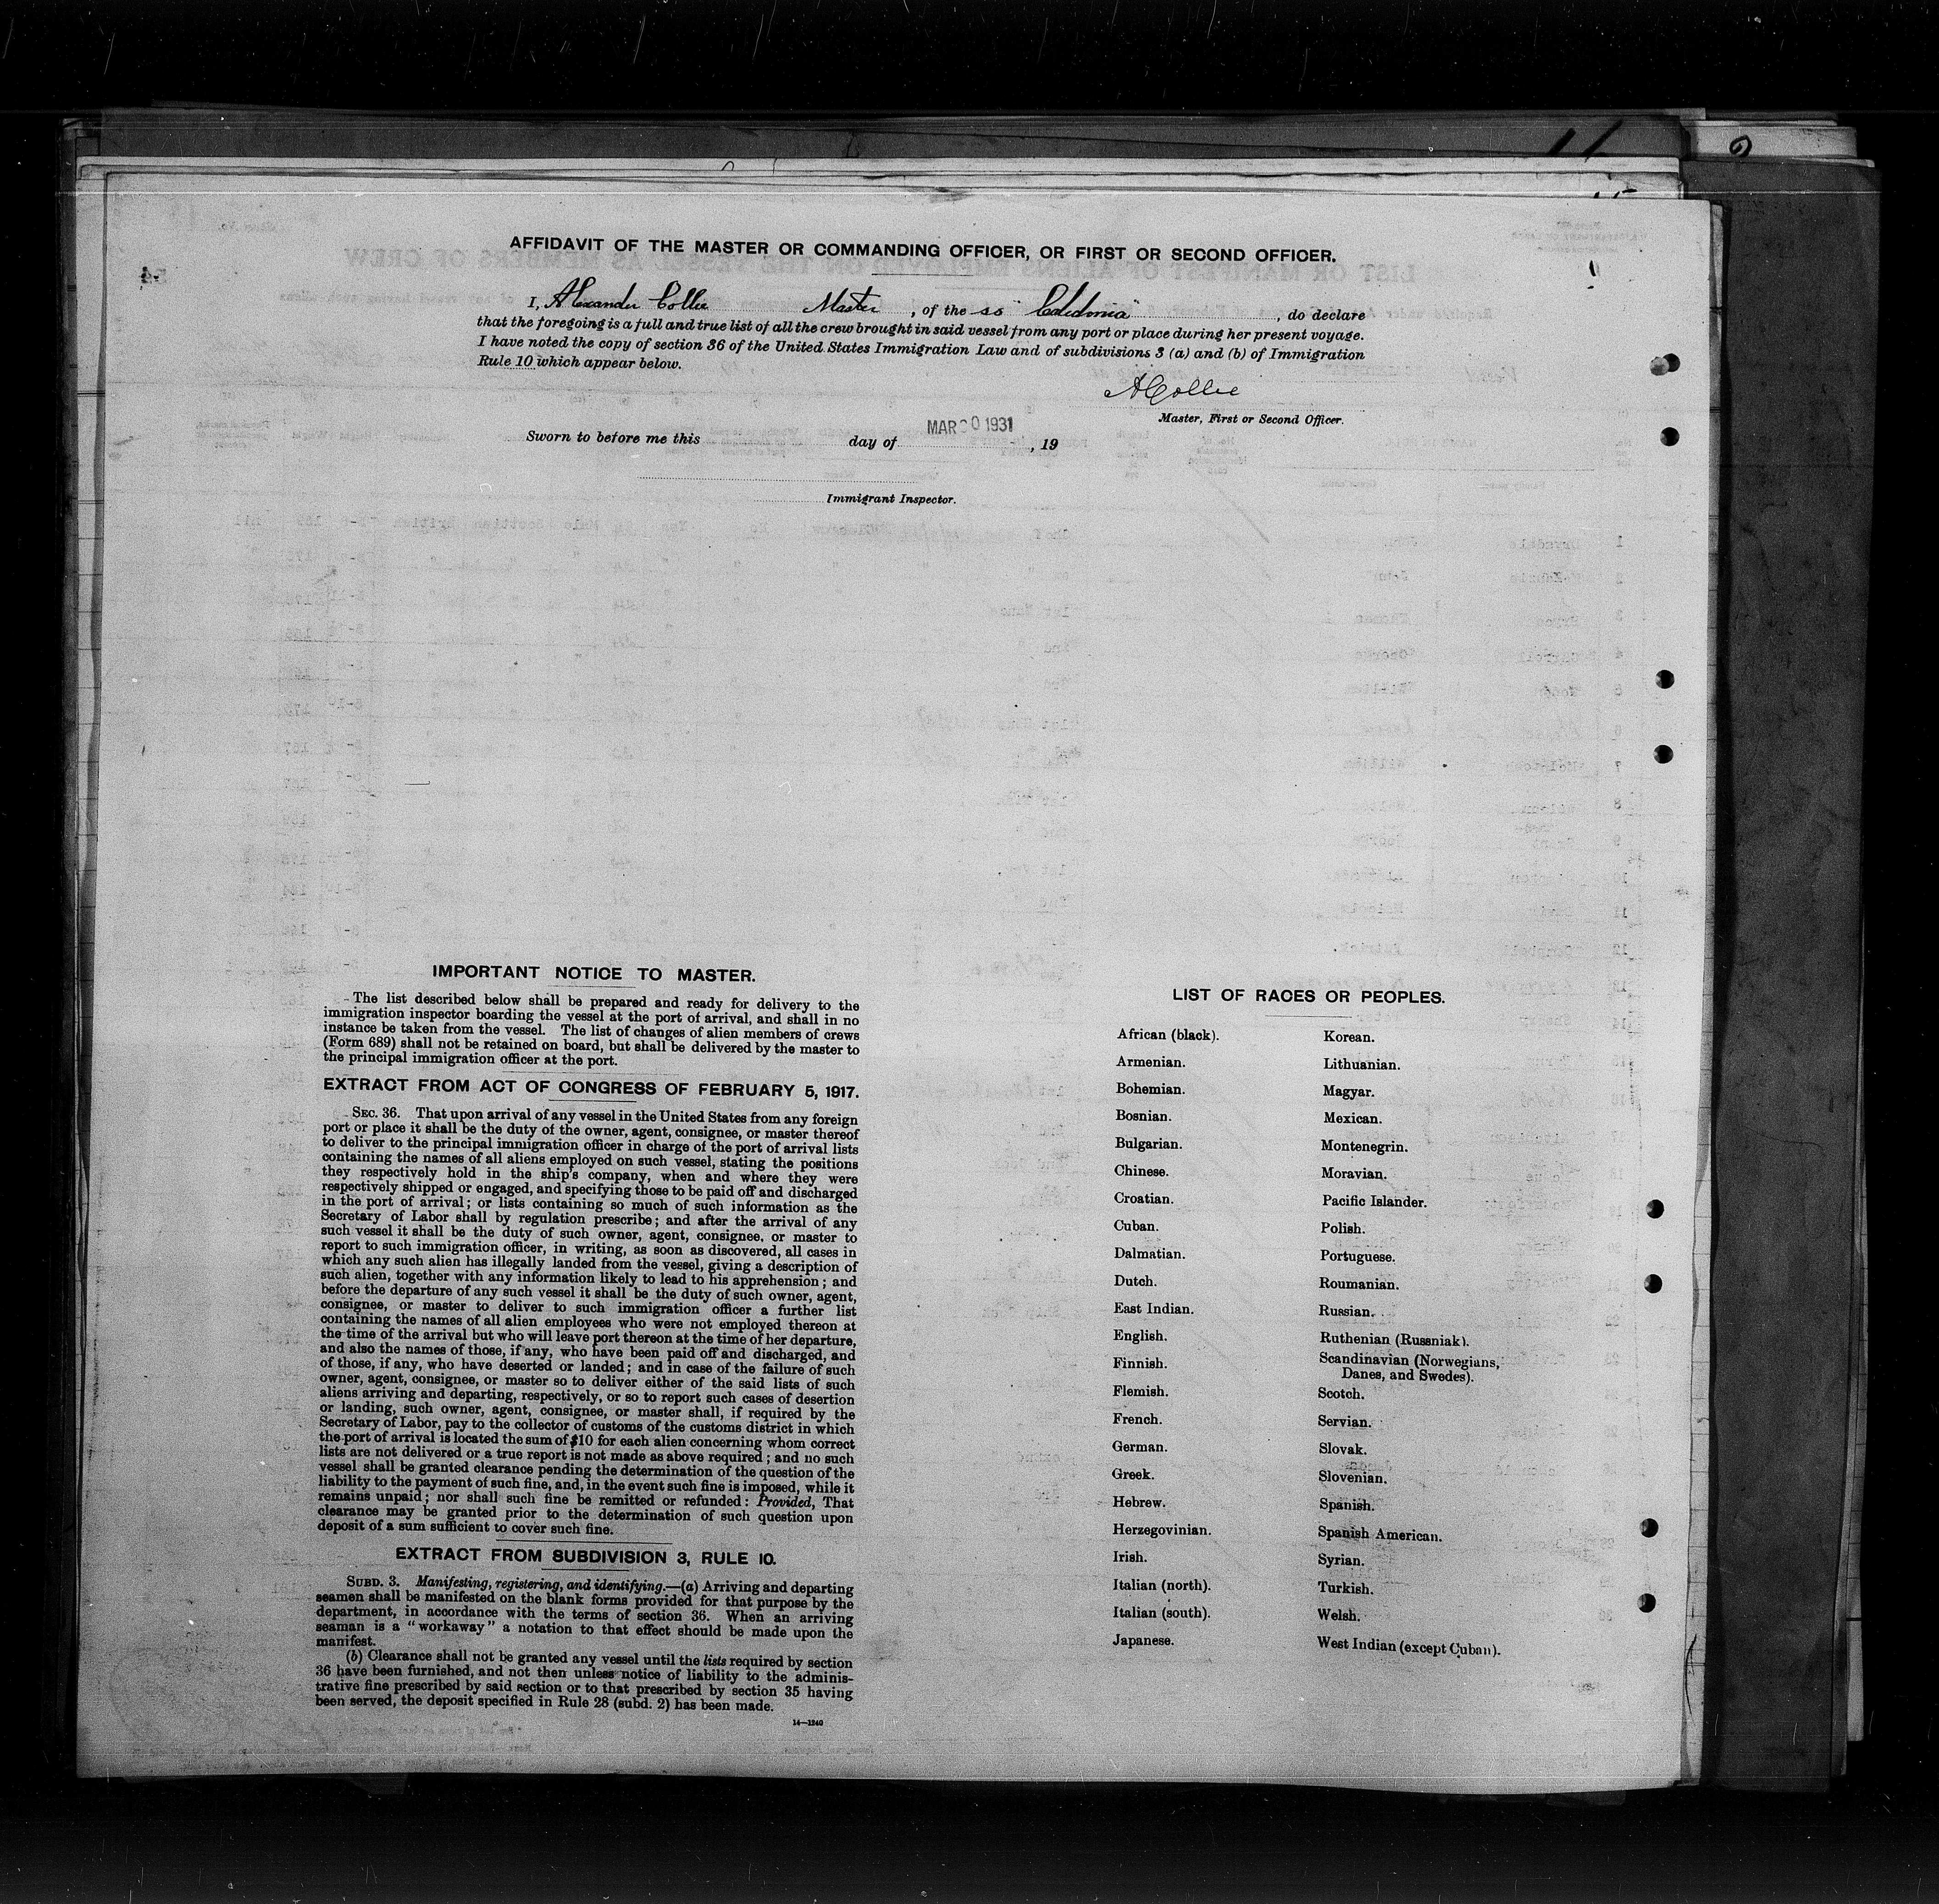 AFFIDAVIT OF THE MASTER OR COMMANDING OFFICER, OR FIRST OR SECOND OFFICER.
I, Alexander Collie Master, of the ss "Caledonia", do declare
that the foregoing is a full and true list of all the crew brought in said vessel from any port or place during her present voyage.
I have noted the copy of section 36 of the United States Immigration Law and of subdivisions 3 (a) and (b) of Immigration
Rule 10 which appear below.
A Collie
Master, First or Second Officer.
MAR 0 1931
Sworn to before me this day of , 19
Immigrant Inspector.
IMPORTANT NOTICE TO MASTER.
The list described below shall be prepared and ready for delivery to the
immigration inspector boarding the vessel at the port of arrival, and shall in no
instance be taken from the vessel. The list of changes of alien members of crews
(Form 689) shall not be retained on board, but shall be delivered by the master to
the principal immigration officer at the port.
EXTRACT FROM ACT OF CONGRESS OF FEBRUARY 5, 1917.
SEC. 36. That upon arrival of any vessel in the United States from any foreign
port or place it shall be the duty of the owner, agent, consignee, or master thereof
to deliver to the principal immigration officer in charge of the port of arrival lists
containing the names of all aliens employed on such vessel, stating the positions
they respectively hold in the ship's company, when and where they were
respectively shipped or engaged, and specifying those to be paid off and discharged
in the port of arrival; or lists containing so much of such information as the
Secretary of Labor shall by regulation prescribe; and after the arrival of any
such vessel it shall be the duty of such owner, agent, consignee, or master to
report to such immigration officer, in writing, as soon as discovered, all cases in
which any such alien has illegally landed from the vessel, giving a description of
such alien, together with any information likely to lead to his apprehension; and
before the departure of any such vessel it shall be the duty of such owner, agent,
consignee, or master to deliver to such immigration officer a further list
containing the names of all alien employees who were not employed thereon at
the time of the arrival but who will leave port thereon at the time of her departure,
and also the names of those, if any, who have been paid off and discharged, and
of those, if any, who have deserted or landed; and in case of the failure of such
owner, agent, consignee, or master so to deliver either of the said lists of such
aliens arriving and departing, respectively, or so to report such cases of desertion
or landing, such owner, agent, consignee, or master shall, if required by the
Secretary of Labor, pay to the collector of customs of the customs district in which
the port of arrival is located the sum of $10 for each alien concerning whom correct
lists are not delivered or a true report is not made as above required; and no such
vessel shall be granted clearance pending the determination of the question of the
liability to the payment of such fine, and, in the event such fine is imposed, while it
remains unpaid; nor shall such fine be remitted or refunded: Provided, That
clearance may be granted prior to the determination of such question upon
deposit of a sum sufficient to cover such fine.
EXTRACT FROM SUBDIVISION 3, RULE 10.
SUBD. 3. Manifesting, registering, and identifying.—(a) Arriving and departing
seamen shall be manifested on the blank forms provided for that purpose by the
department, in accordance with the terms of section 36. When an arriving
seaman is a "workaway" a notation to that effect should be made upon the
manifest.
(b) Clearance shall not be granted any vessel until the lists required by section
36 have been furnished, and not then unless notice of liability to the adminis-
trative fine prescribed by said section or to that prescribed by section 35 having
been served, the deposit specified in Rule 28 (subd. 2) has been made.
14—1240
LIST OF RACES OR PEOPLES.
African (black).
Armenian.
Bohemian.
Bosnian.
Bulgarian.
Chinese.
Croatian.
Cuban.
Dalmatian.
Dutch.
East Indian.
English.
Finnish.
Flemish.
French.
German.
Greek.
Hebrew.
Herzegovinian.
Irish.
Italian (north).
Italian (south).
Japanese.
Korean.
Lithuanian.
Magyar.
Mexican.
Montenegrin.
Moravian.
Pacific Islander.
Polish.
Portuguese.
Roumanian.
Russian.
Ruthenian (Russniak).
Scandinavian (Norwegians,
Danes, and Swedes).
Scotch.
Servian.
Slovak.
Slovenian.
Spanish.
Spanish American.
Syrian.
Turkish.
Welsh.
West Indian (except Cuban).